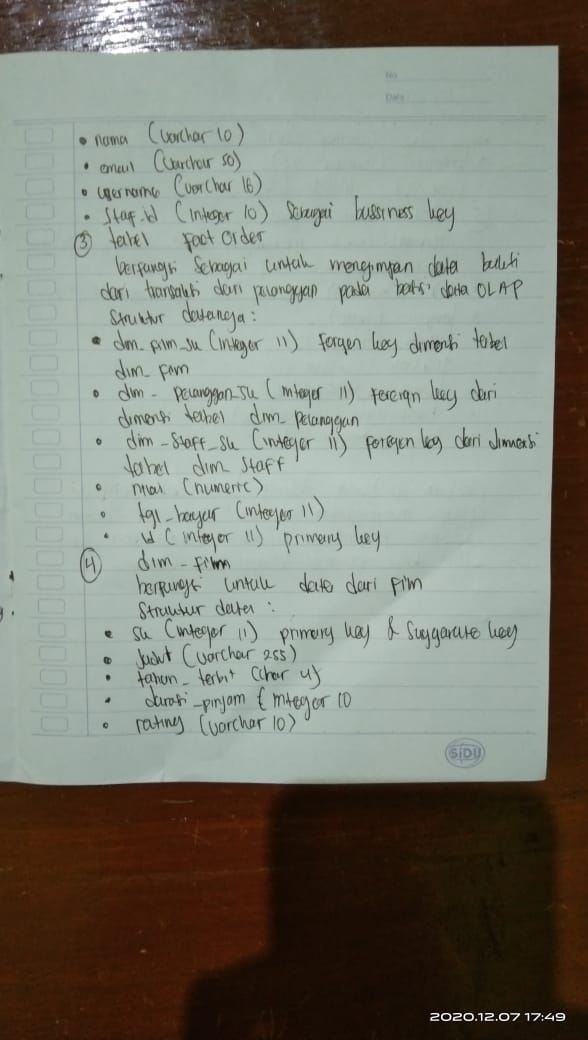 No
Date
• nama (Varchar 10)
• email (Varchar 50)
• username (Varchar 16)
• Staf_id (Integer 10) Sebagai bussiness key
③ tabel fact Order
berfungsi Sebagai untuk menyimpan data bukti
dari transaksi dari pelanggan pada basis data OLAP
Struktur datanya:
• dim_film_su (integer 11) forgen key dimensi tabel
dim_film
• dim - pelanggan_su (integer 11) foreign key dari
dimensi tabel dim_pelanggan
• dim - Staff_su (integer 11) foregen key dari dimensi
tabel dim Staff
• nilai (numeric)
• tgl_bayar (integer 11)
• id (integer 11) primary key
④ dim - film
berfungsi untuk data dari film
Struktur data :
• su (integer 11) primary key & Suggarate key
• Judul (varchar 255)
• tahun_terbit (char 4)
• durasi_pinjam (integer 10
• rating (varchar 10)
SiDU
2020.12.07 17:49